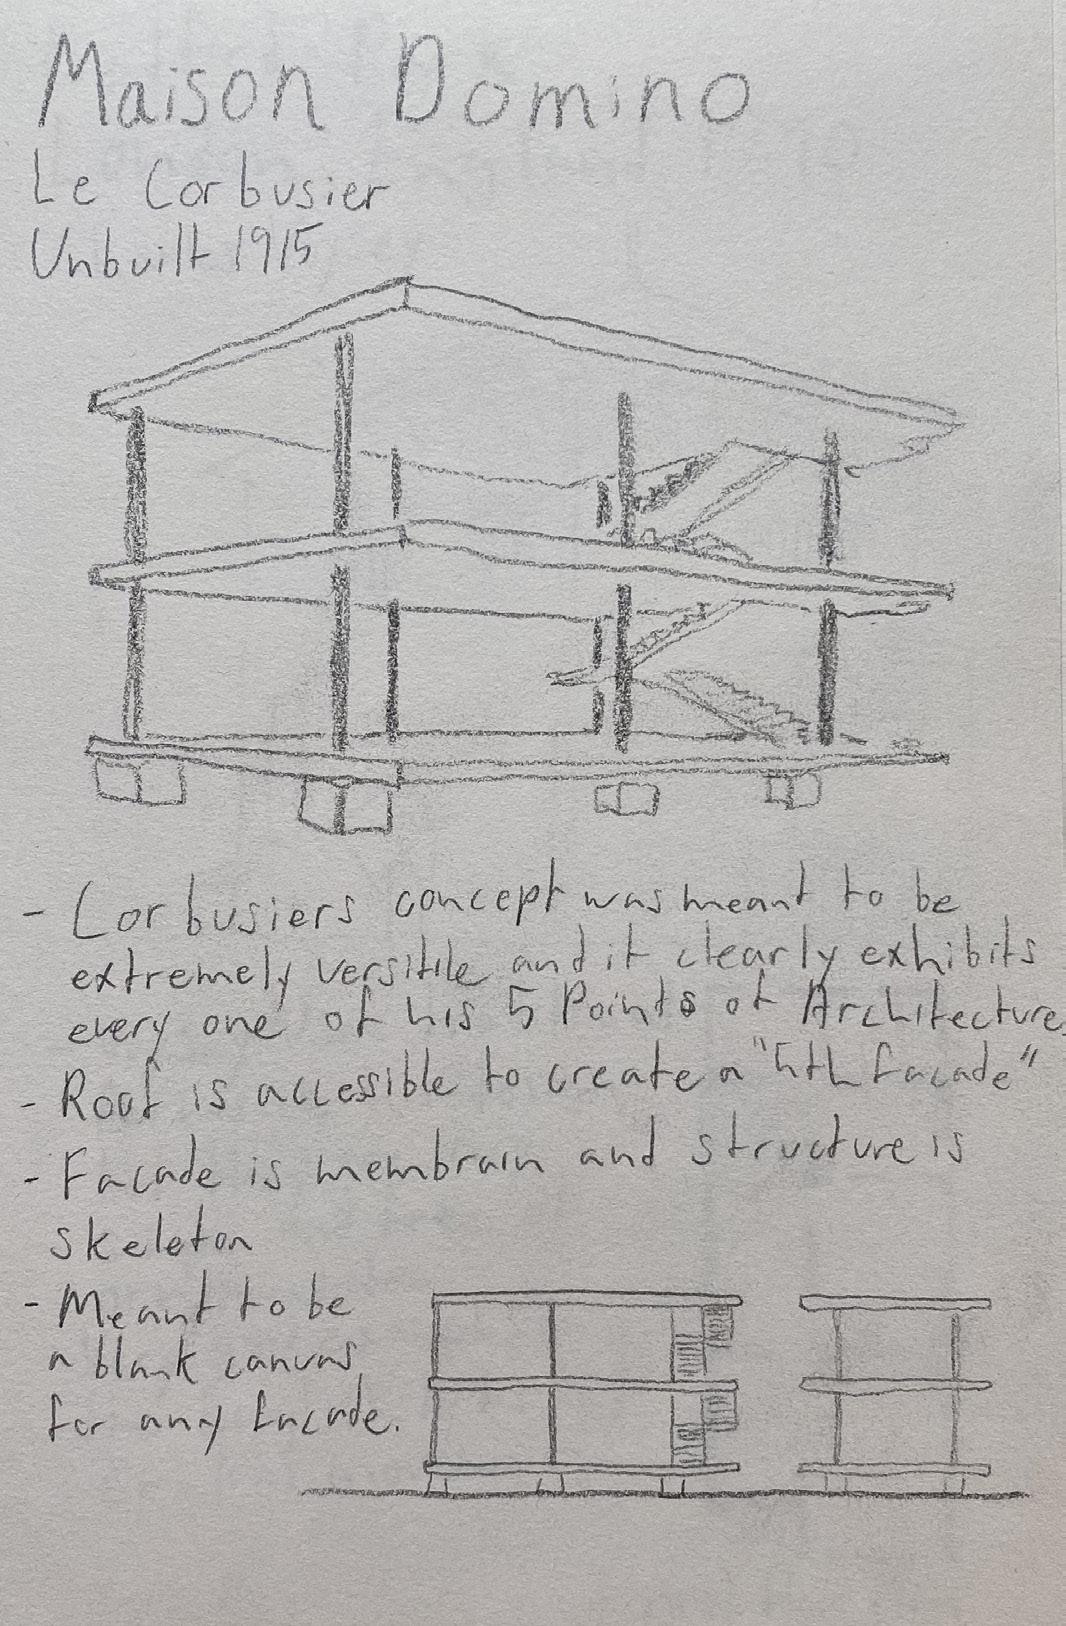 Maison Domino
Le Corbusier
Unbuilt 1915
- Corbusiers concept was meant to be
extremely versitile and it clearly exhibits
every one of his 5 Points of Architecture.
- Roof is accessible to create a "5th facade"
- Facade is membrain and structure is
skeleton
- Meant to be
a blank canvas
for any facade.